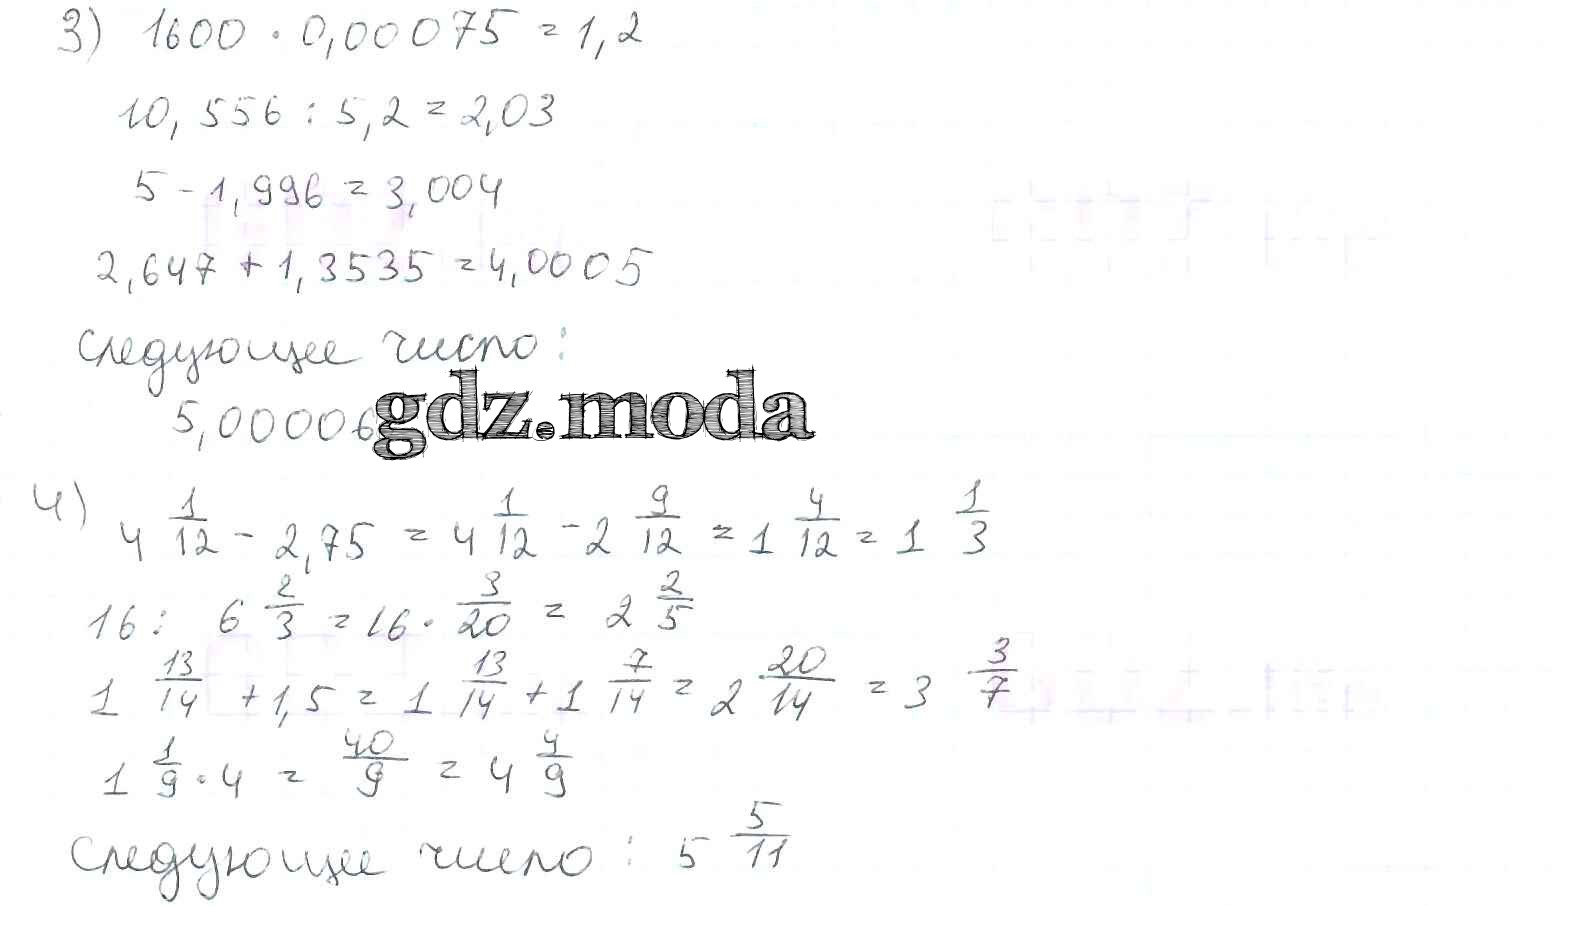 3) 1600 · 0,00075 = 1,2
10,556 : 5,2 = 2,03
5 - 1,996 = 3,004
2,647 + 1,3535 = 4,0005
следующее число:
5,00006
gdz.moda
4) 4 1/12 - 2,75 = 4 1/12 - 2 9/12 = 1 4/12 = 1 1/3
16 : 6 2/3 = 16 · 3/20 = 2 2/5
1 13/14 + 1,5 = 1 13/14 + 1 7/14 = 2 20/14 = 3 3/7
1 1/9 · 4 = 40/9 = 4 4/9
следующее число: 5 5/11